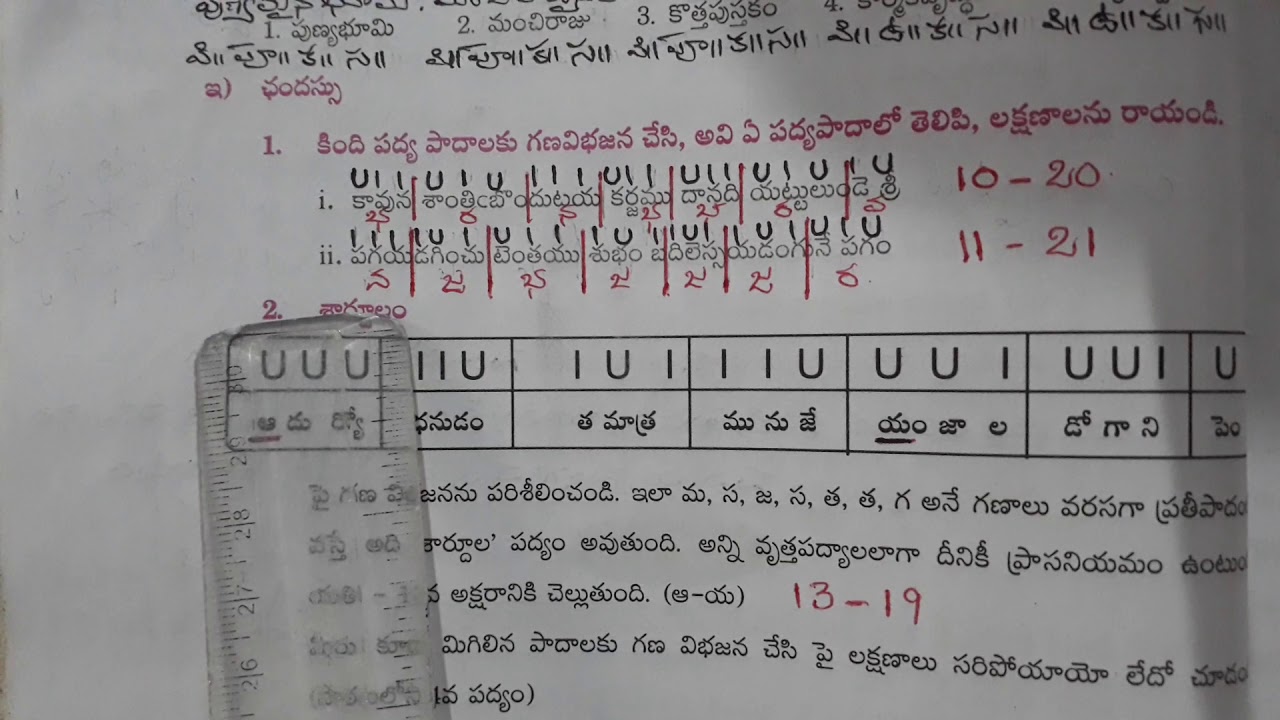 1. పుణ్యభూమి 2. మంచిరాజు 3. కొత్తపుస్తకం 4.
వి॥ పూ॥ క॥ స॥ వి॥ పూ॥ క॥ స॥ వి॥ పూ॥ క॥ స॥ వి॥ ఉ॥ క॥ స॥ వి॥ ఉ॥ క॥ స॥
ఇ) ఛందస్సు
1. కింది పద్య పాదాలకు గణవిభజన చేసి, అవి ఏ పద్యపాదాలో తెలిపి, లక్షణాలను రాయండి.
i. కావున శాంతిఁబొందుటయ కర్జము దానది యట్టులుండె శ్రీ 10 - 20
ii. పగయడగించు టెంతయు శుభం బదిలెస్సయడంగునే పగం 11 - 21
న జ భ జ జ జ ర
2. శార్దూలం
U U U I I U I U I I I U U U I U U I U
ఆ దు ర్యో ధనుడం త మాత్ర ము ను జే యం జా ల డో గా ని పెం
పై గణ విభజనను పరిశీలించండి. ఇలా మ, స, జ, స, త, త, గ అనే గణాలు వరసగా ప్రతీపాదం
వస్తే అది కార్దూల' పద్యం అవుతుంది. అన్ని వృత్తపద్యాలలాగా దీనికీ ప్రాసనియమం ఉంటుం
యతి - వ అక్షరానికి చెల్లుతుంది. (ఆ-య) 13 - 19
మీరు కూడా మిగిలిన పాదాలకు గణ విభజన చేసి పై లక్షణాలు సరిపోయాయో లేదో చూడం
వ పద్యం)